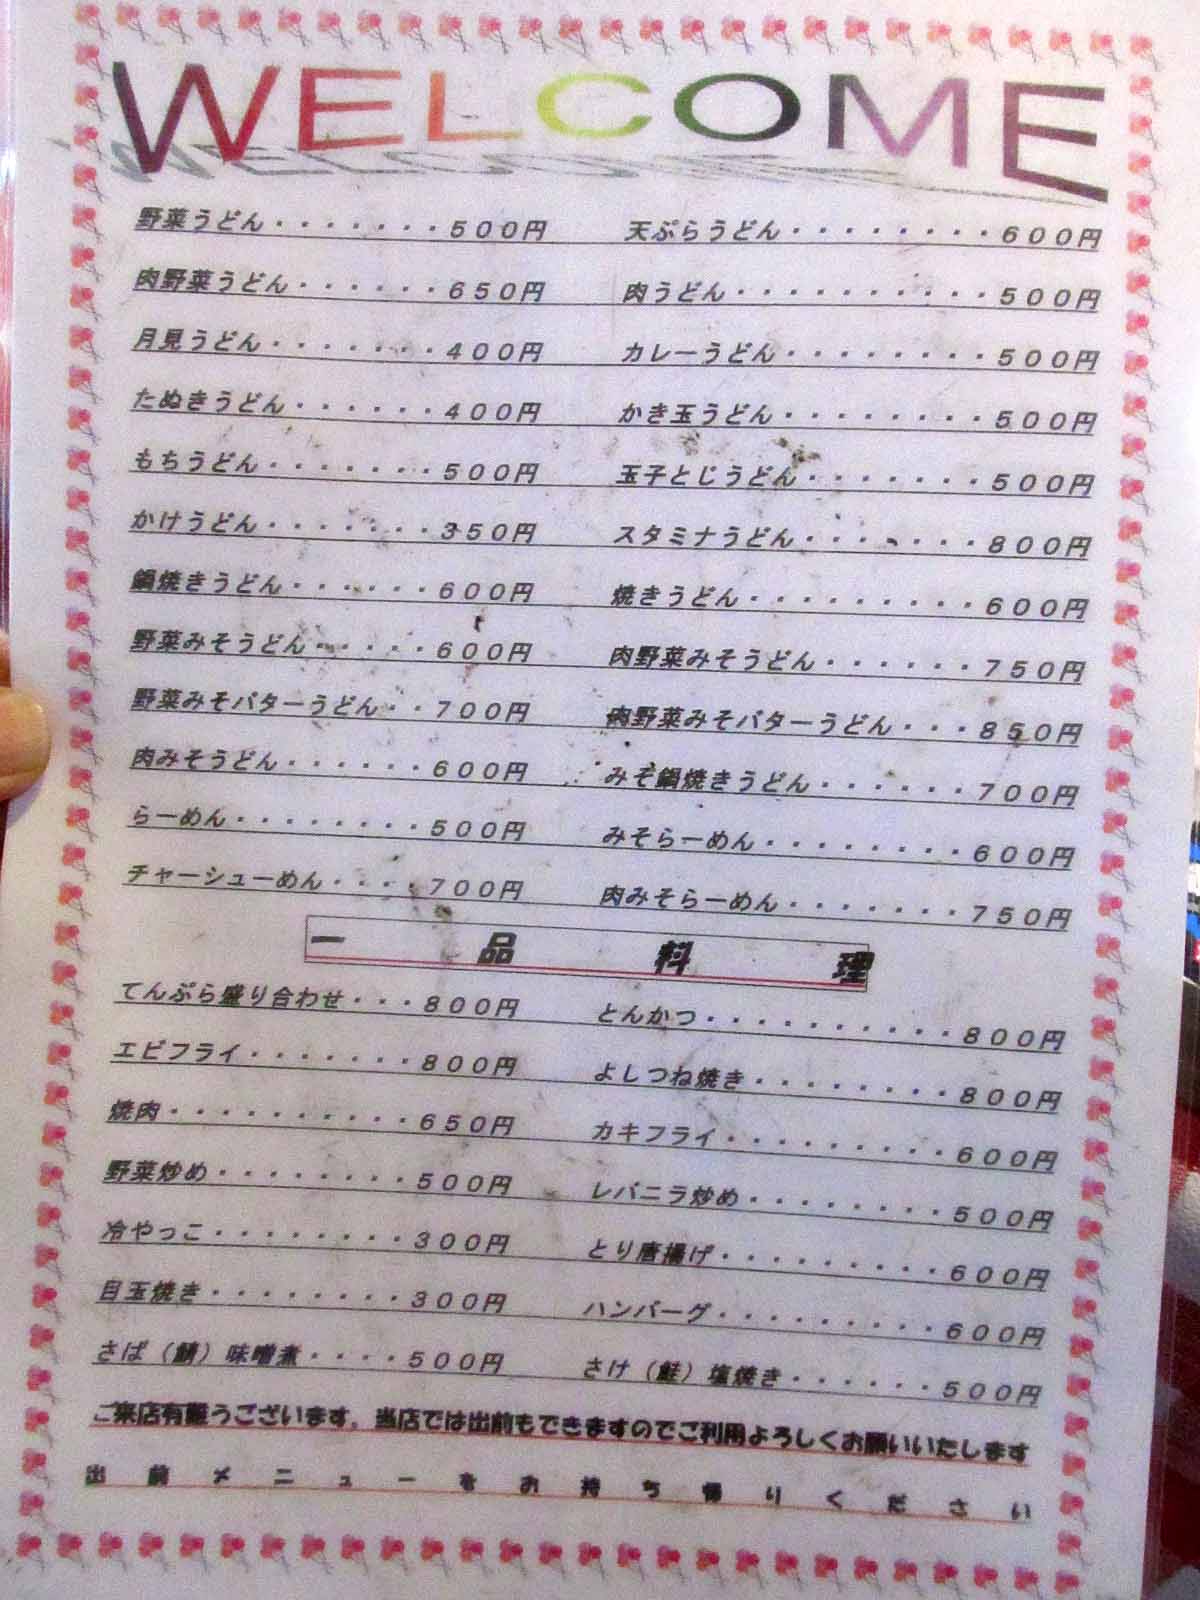 WELCOME
野菜うどん・・・・・・・５００円 天ぷらうどん・・・・・・・・・６００円
肉野菜うどん・・・・・・６５０円 肉うどん・・・・・・・・・・・５００円
月見うどん・・・・・・・４００円 カレーうどん・・・・・・・・・５００円
たぬきうどん・・・・・・４００円 かき玉うどん・・・・・・・・・５００円
もちうどん・・・・・・・５００円 玉子とじうどん・・・・・・・・５００円
かけうどん・・・・・・・３５０円 スタミナうどん・・・・・・・・８００円
鍋焼きうどん・・・・・・６００円 焼きうどん・・・・・・・・・・６００円
野菜みそうどん・・・・・６００円 肉野菜みそうどん・・・・・・・７５０円
野菜みそバターうどん・・７００円 肉野菜みそバターうどん・・・・８５０円
肉みそうどん・・・・・・６００円 みそ鍋焼きうどん・・・・・・・７００円
らーめん・・・・・・・・５００円 みそらーめん・・・・・・・・・６００円
チャーシューめん・・・・７００円 肉みそらーめん・・・・・・・・７５０円
一品料理
てんぷら盛り合わせ・・・８００円 とんかつ・・・・・・・・・・・８００円
エビフライ・・・・・・・８００円 よしつね焼き・・・・・・・・・８００円
焼肉・・・・・・・・・・６５０円 カキフライ・・・・・・・・・・６００円
野菜炒め・・・・・・・・５００円 レバニラ炒め・・・・・・・・・５００円
冷やっこ・・・・・・・・３００円 とり唐揚げ・・・・・・・・・・６００円
目玉焼き・・・・・・・・３００円 ハンバーグ・・・・・・・・・・６００円
さば（鯖）味噌煮・・・・５００円 さけ（鮭）塩焼き・・・・・・・５００円
ご来店有難うございます。当店では出前もできますのでご利用よろしくお願いいたします
出前メニューをお持ち帰りください